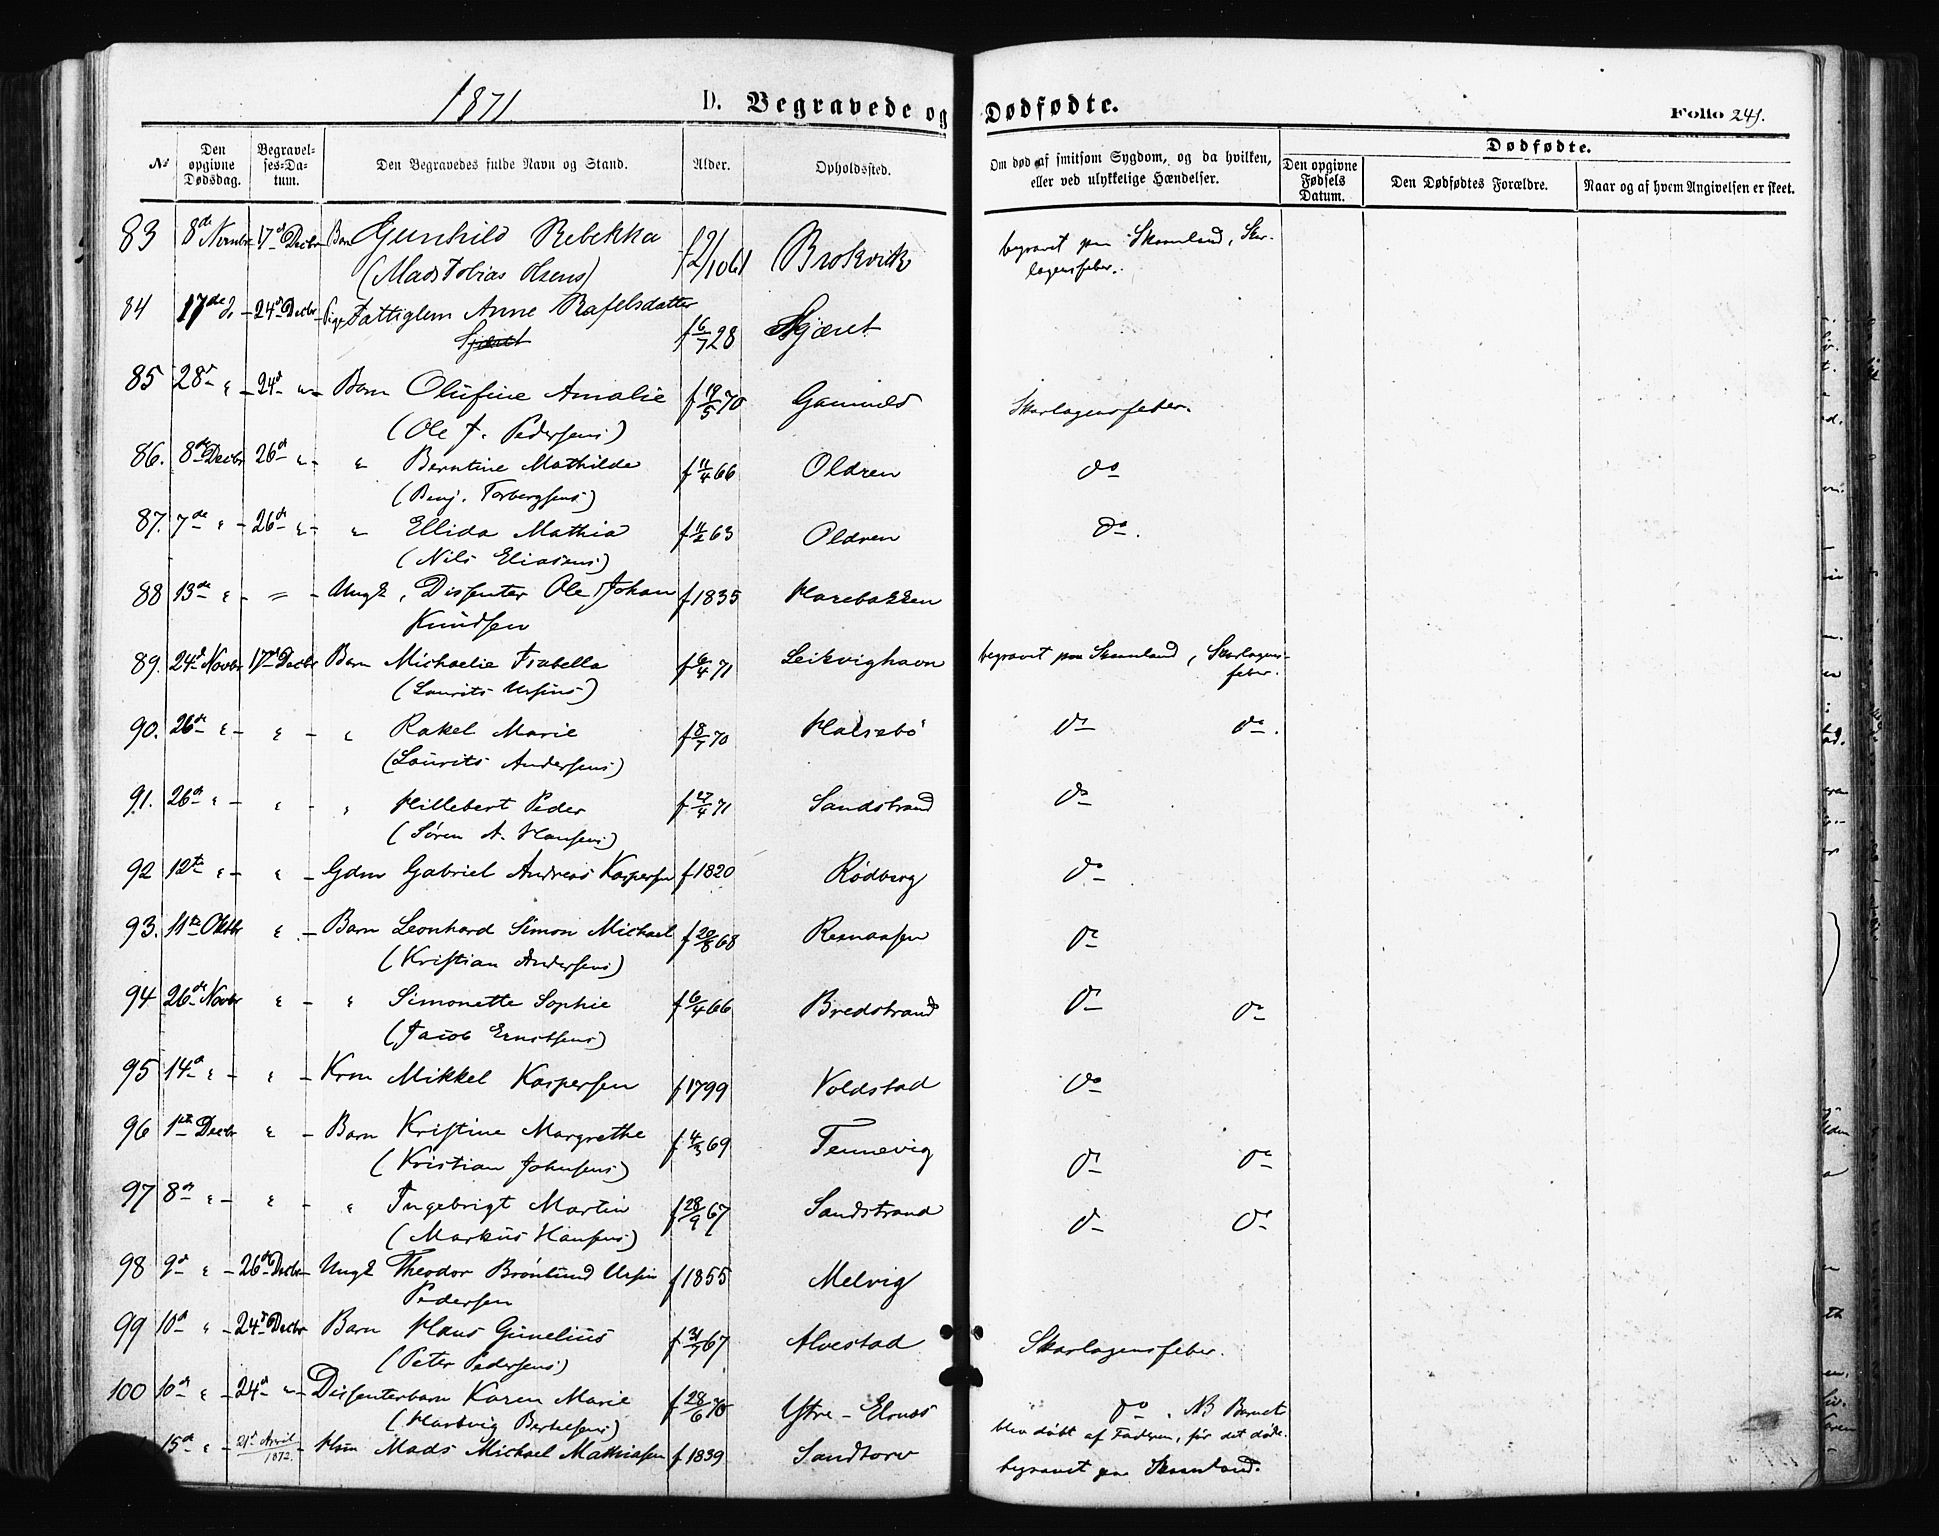 1871
D. Begravede og Dødfødte.
Folio 241.
№
Den opgivne Dødsdag.
Begravelses-Datum.
Den Begravedes fulde Navn og Stand.
Alder.
Opholdssted.
Om død af smitsom Sygdom, og da hvilken, eller ved ulykkelige Hændelser.
Dødfødte.
Den opgivne Fødsels Datum.
Den Dødfødtes Forældre.
Naar og af hvem Angivelsen er skeet.
83 8de Novmbr 17de Decbr Barn Gunhild Rebekka Brokvik begravet paa Skaanland, Skar-
(Mads Tobias Olsens) lagensfeber.
84 17de 24de Decbr Pige Fattiglem Anne Rafelsdatter f 6/7 28 Skjæret
85 28de " 24de " Barn Olufine Amalie f 19/5 70 Gammeld Skarlagensfeber.
(Ole J. Pedersens)
86. 8de Decbr 26de " " Berntine Mathilde f 11/4 66 Oldren do
(Benj. Torbergsens)
87. 7de " 26de " " Ellida Mathia f 11/2 63 Oldren do.
(Nils Eliasens)
88 13de " " Ungk, Dissenter Ole Johan f 1835 Harebakken
Knudsen
89. 24de Novbr 17de Decbr Barn Michaelie Isabella f 6/4 71 Leikvighavn begravet paa Skaanland, Skarlagens-
(Laurits Ursins) feber.
90. 26de " " " Rakel Marie f 8/7 70 Halsebø do do.
(Laurits Andersens)
91. 26de " " " Hillebert Peder f 27/4 71 Sandstrand do
(Søren A. Hansens)
92 12te " " Gdm Gabriel Andreas Kaspersen f 1820 Rødberg do
93. 11te Oktbr " Barn Leonhard Simon Michael f 20/8 68 Rennaasen do
(Kristian Andersens)
94 26de Novbr " " Simonette Sophie f 6/4 66 Bredstrand do do
(Jacob Ernstsens)
95 14de " " Krm Mikkel Kaspersen f 1799 Voldstad do
96 1ste Decbr " Barn Kristine Margrethe f 4/3 69 Tennevig do do
(Kristian Johnsens)
97 8de " " " Ingebrigt Martin f 28/9 67 Sandstrand do do
(Markus Hansens)
98 9de " 26de Decbr Ungk Theodor Brønlund Ursin f 1855 Melvig
Pedersen
99 10de " 24de Decbr Barn Hans Gunelius f 31/7 67 Alvestad Skarlagensfeber.
(Peter Pedersens)
100 10de " 24de " Dissenterbarn Karen Marie f 28/6 70 Ytre-Elvnes do. NB Barnet
(Hartvig Bertelsens) blev døbt af Faderen, før det døde.
15de " 21de April 1872. Hsm Mads Michael Mathiasen f 1839 Sandtorv begravet paa Skaanland.